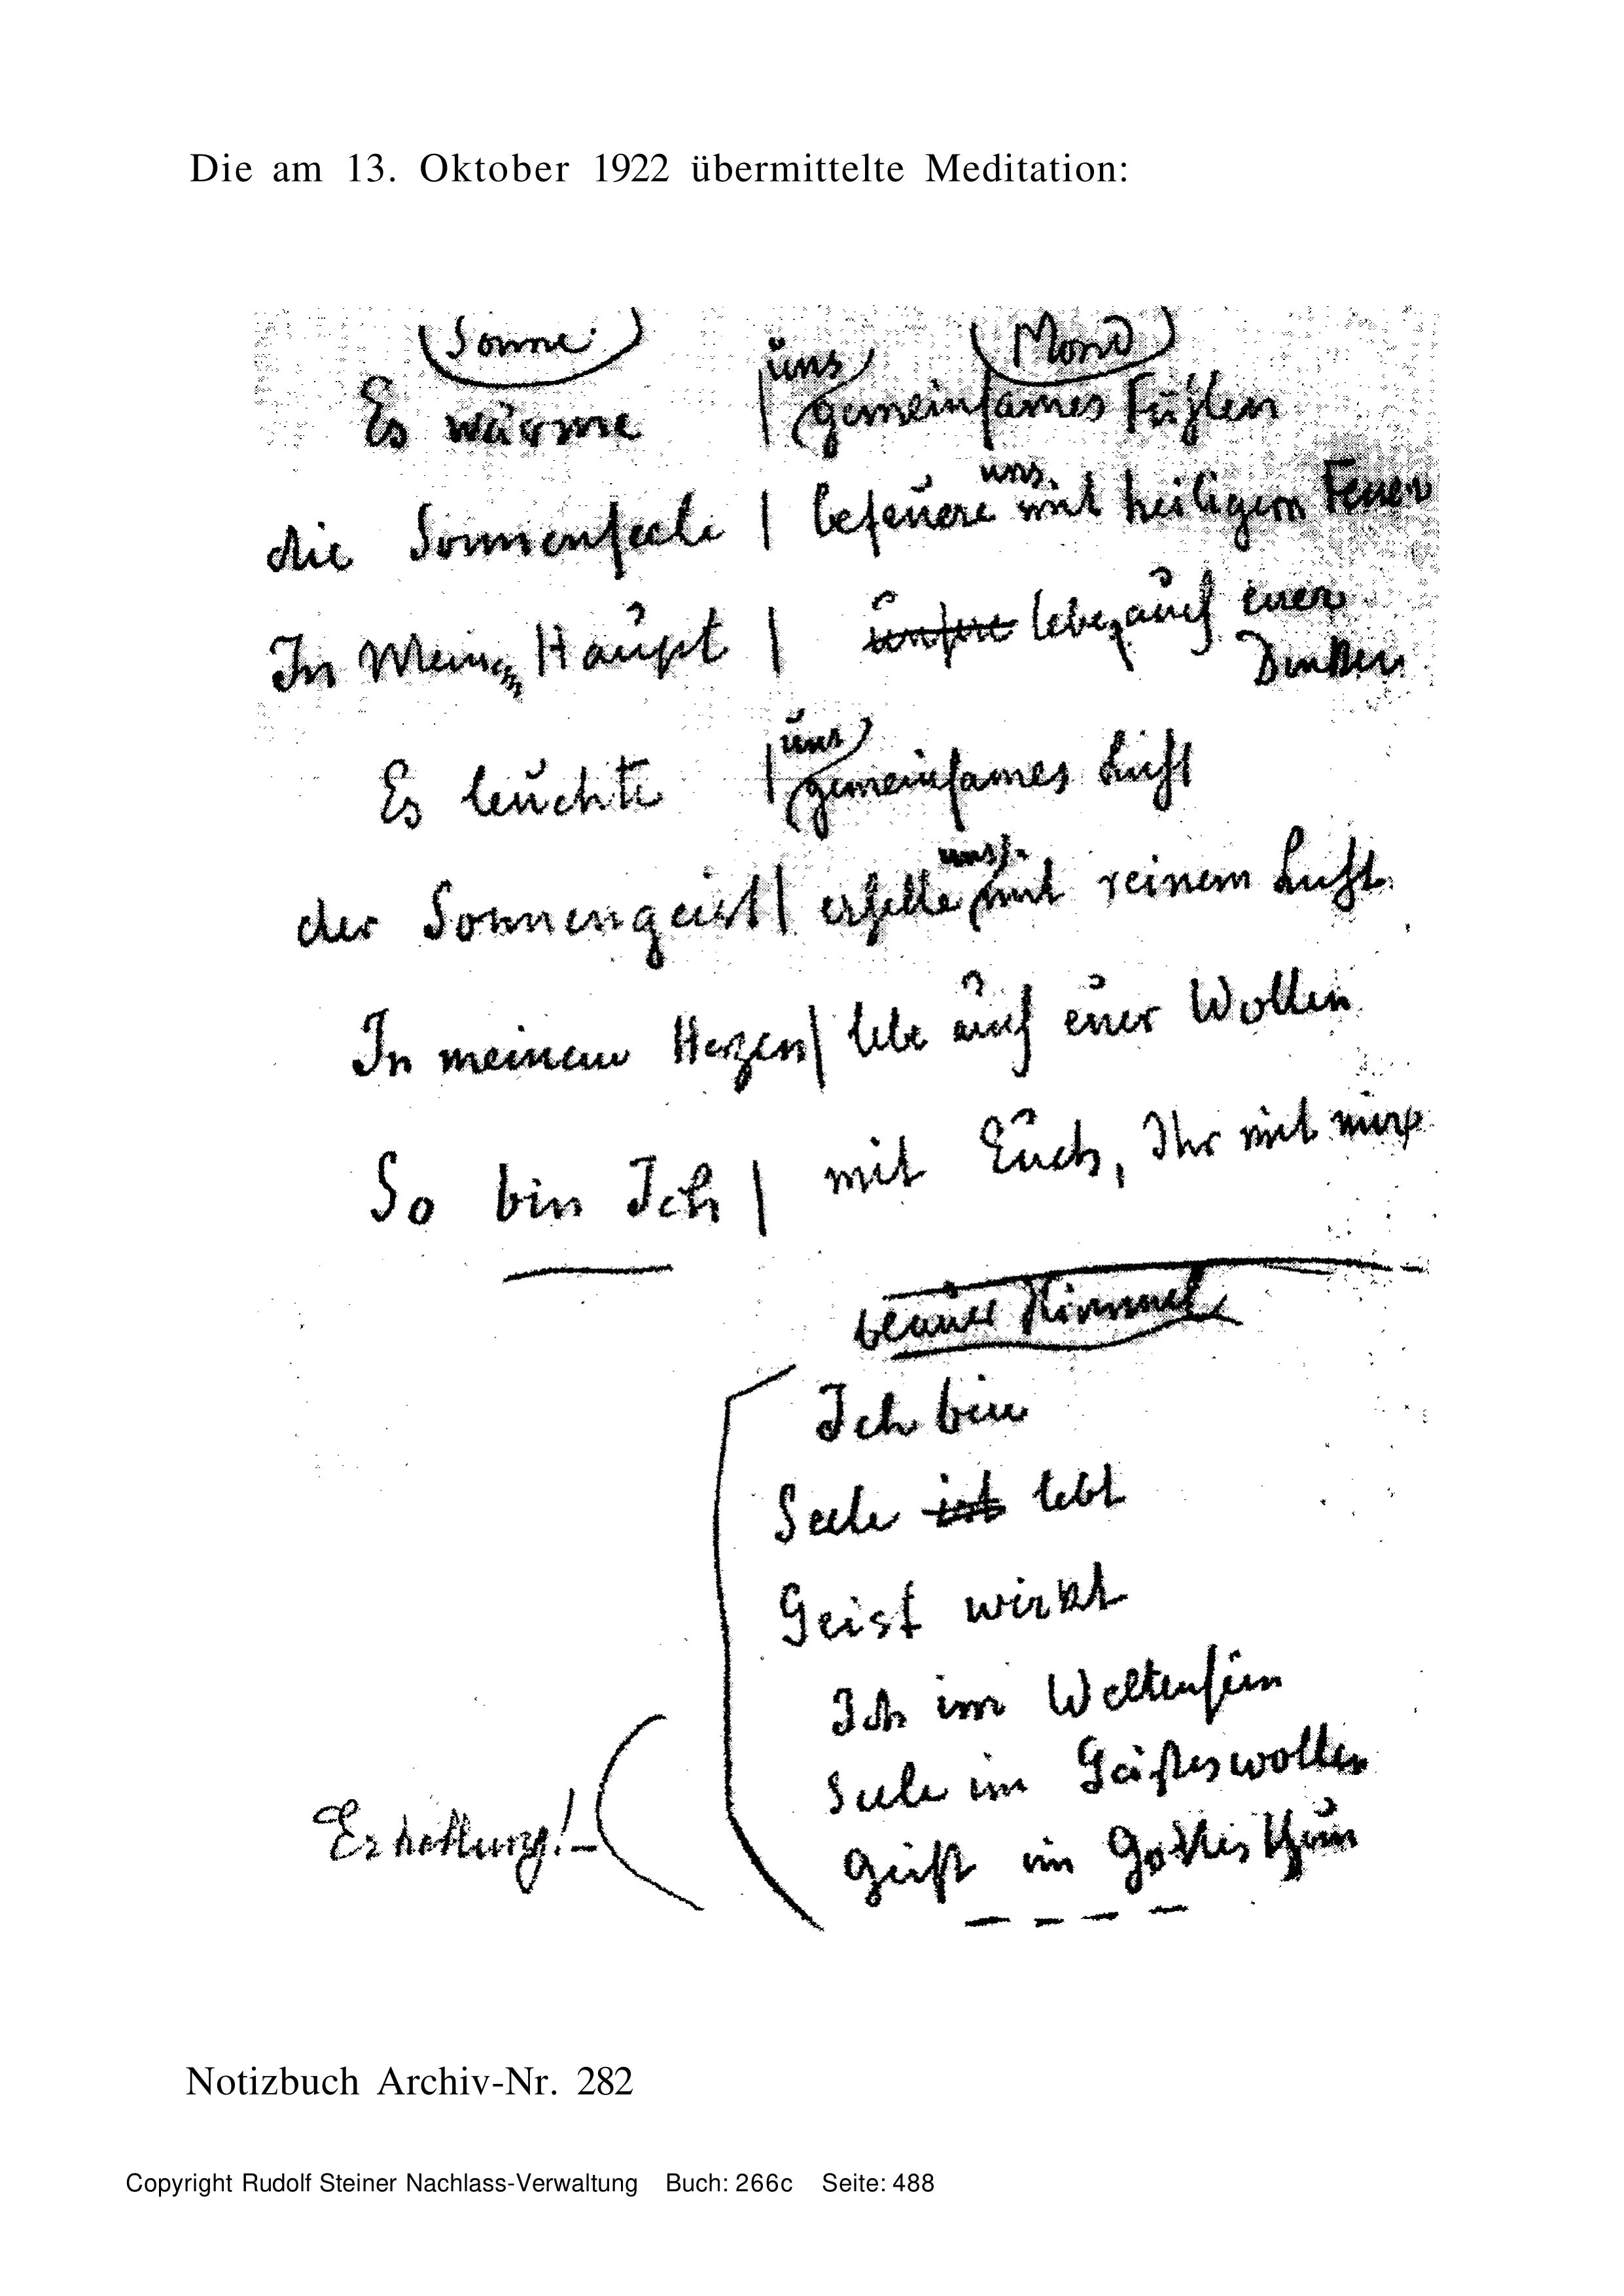 Die am 13. Oktober 1922 übermittelte Meditation:
Sonne Mond
uns
Es wärme | gemeinsames Fühlen
uns
die Sonnenseele | befeuere mit heiligem Feuer
In Mein Haupt | unsere lebe, auch euer
Denken
uns
Es leuchte | gemeinsames Licht
uns
der Sonnengeist | erhelle mit reinem Licht
In meinem Herzen | lebe auch euer Wollen
So bin Ich | mit Euch, Ihr mit mir
Himmel
Ich bin
Seele ist lebt
Geist wirkt
Ich im Weltensein
Seele im Geisteswollen
Erhaltung! – Geist im Gottesthun
Notizbuch Archiv-Nr. 282
Copyright Rudolf Steiner Nachlass-Verwaltung Buch: 266c Seite: 488